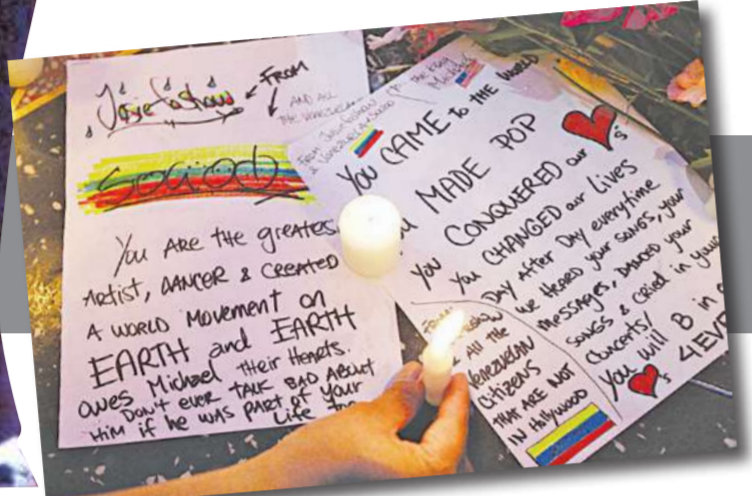 FROM
AND ALL
THE VENEZUELAN
You ARE the greatest
Artist, DANCER & CREATED
A WORLD MOVEMENT ON
EARTH and EARTH
owes Michael their Hearts.
DON'T EVER TALK BAD ABOUT
HIM if he was PART of Your
Life
FROM
You CAME to the WORLD
You MADE POP
You CONQUERED our ♥s
You CHANGED our Lives
DAY After DAY everytime
we HEARD your SONGS, your
messages, DANCED your
SONGS & CRIED in your
CONCERTS/
You will B in
♥s 4EVER
FROM
All the
Venezuelan
Citizens
THAT ARE NOT
IN Hollywood